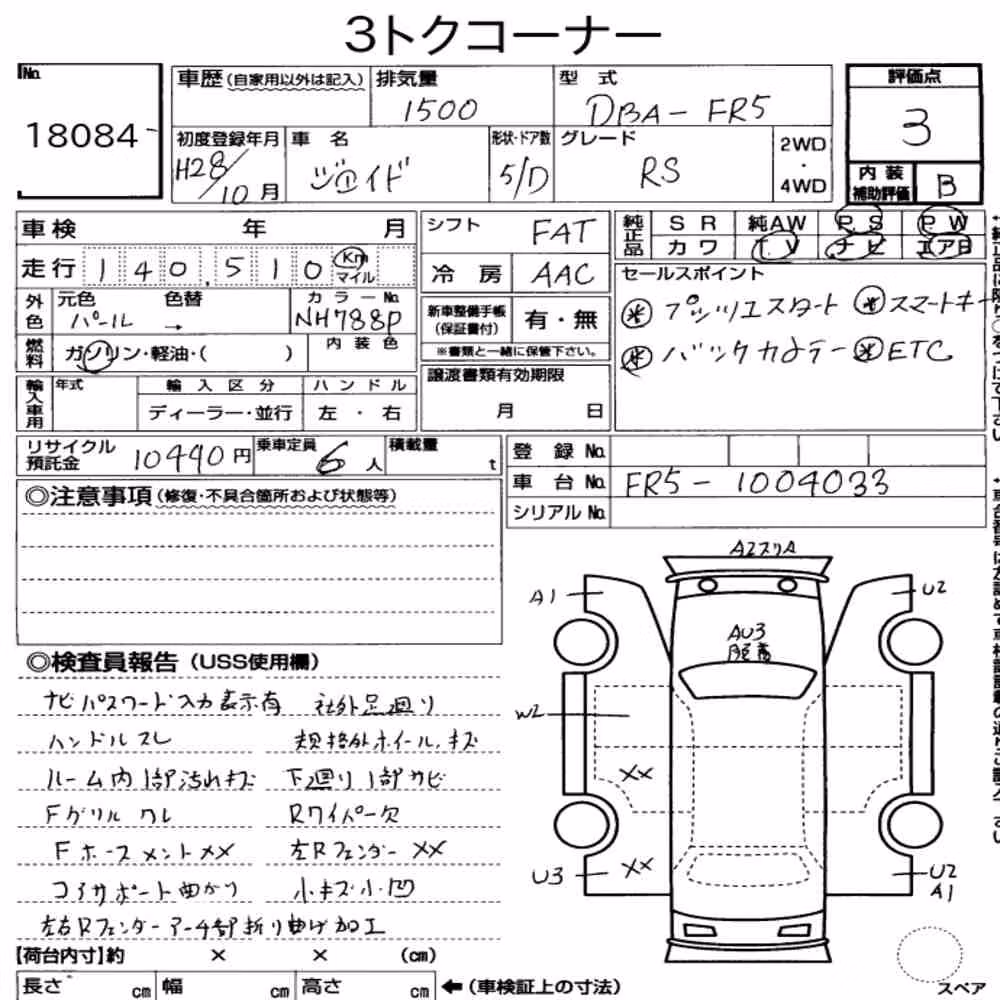 3トクコーナー
No.
18084
車歴(自家用以外は記入)
排気量
1500
型 式
DBA-FR5
評価点
3
初度登録年月
H28/10月
車 名
ジェイド
形状・ドア数
5/D
グレード
RS
2WD
・
4WD
内 装
補助評価
B
車検 年 月
走行 140,510 Km
マイル
シフト
FAT
冷 房
AAC
純正品
SR 純AW PS PW
カワ TV ナビ エアB
セールスポイント
* プッシュスタート * スマートキー
* バックカメラー * ETC
外色
元色 色替
パール →
カラーNo.
NH788P
新車整備手帳
(保証書付)
有・無
※書類と一緒に保管下さい。
燃料
ガソリン・軽油・( )
内 装 色
譲渡書類有効期限
月 日
輸入車用
年式
輸 入 区 分
ディーラー・並行
ハ ン ド ル
左 ・ 右
リサイクル
預託金
10440円
乗車定員
6人
積載量
t
登 録 No.
車 台 No.
FR5-1004033
シリアル No.
◎注意事項(修復・不具合箇所および状態等)
◎検査員報告(USS使用欄)
ナビパスワード入力表示有 社外足廻り
ハンドルスレ 規格外ホイール,キズ
ルーム内1部汚れキズ 下廻り1部サビ
Fグリルワレ Rワイパー欠
Fホースメント×× 左Rフェンダー××
コアサポート曲がり 小キズ小凹
左右Rフェンダーアーチ部折り曲げ加工
A2スリA
A1
U2
AU3
W2
××
××
U3
U2
A1
【荷台内寸】約 × × (cm)
長さ cm 幅 cm 高さ cm ←(車検証上の寸法)
スペア